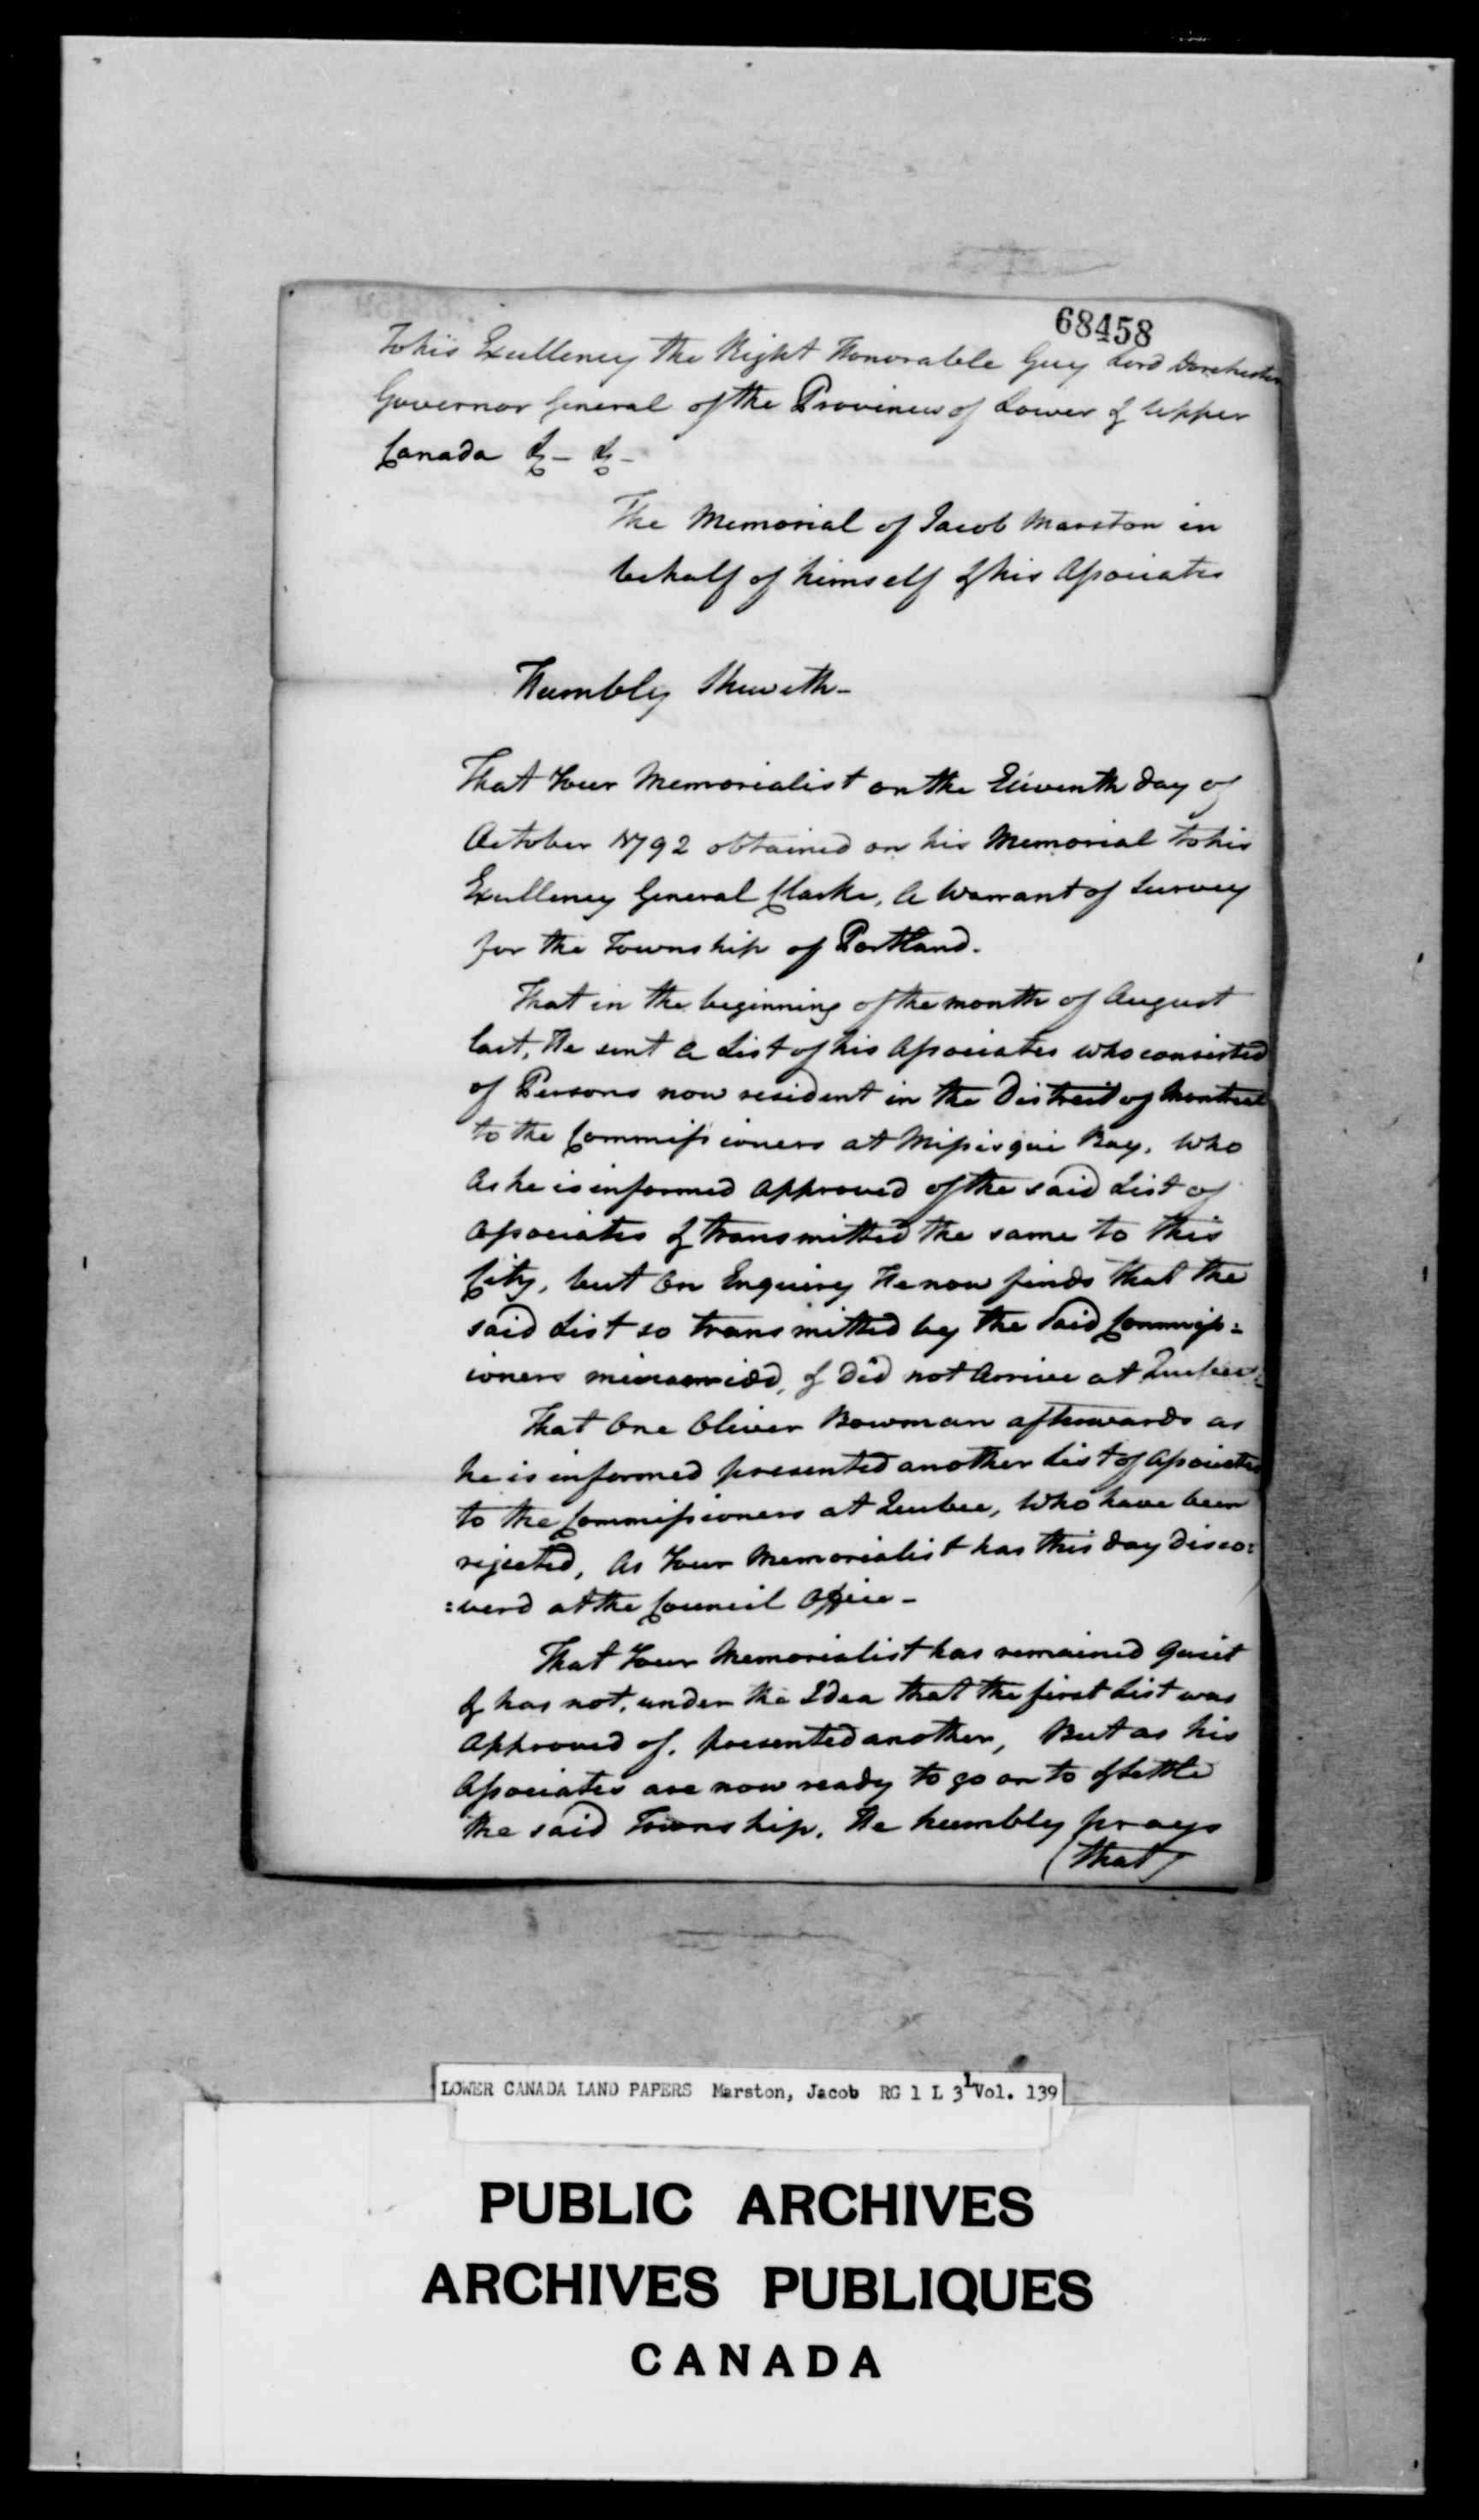 68458
To his Excellency the Right Honorable Guy Lord Dorchester
Governor General of the Provinces of Lower & Upper
Canada &c - &c -
The Memorial of Jacob Marston in
behalf of himself & his Associates
Humbly Sheweth -
That Your Memorialist on the Eleventh day of
October 1792 obtained on his Memorial to his
Excellency General Clarke, a Warrant of Survey
for the Township of Portland.
That in the beginning of the month of August
last, He sent a List of his Associates who consisted
of Persons now resident in the District of Montreal
to the Commissioners at Missisqui Bay, Who
As he is informed Approved of the said List of
Associates & transmitted the same to this
City, but On Enquiry He now finds that the
said List so transmitted by the Said Commiss=
ioners miscarried, & did not Arrive at Quebec.
That One Oliver Bowman afterwards as
he is informed presented another List of Associates
to the Commissioners at Quebec, Who have been
rejected, As Your Memorialist has this day disco=
=verd at the Council Office -
That Your Memorialist has remained Quiet
& has not, under the Idea that the first List was
Approved of, presented another, But as his
Associates are now ready to go on to & settle
the said Township, He humbly prays
(that)
LOWER CANADA LAND PAPERS Marston, Jacob RG 1 L 3L Vol. 139
PUBLIC ARCHIVES
ARCHIVES PUBLIQUES
CANADA